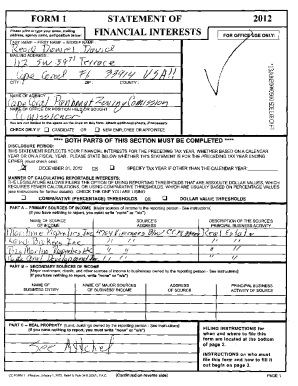 FORM 1 STATEMENT OF 2012
Please print or type your name, mailing address, agency name, and position below:
FINANCIAL INTERESTS
FOR OFFICE USE ONLY:
LAST NAME -- FIRST NAME -- MIDDLE NAME :
Read Daniel David
MAILING ADDRESS :
SW 59th Terrace
Cape Coral Fl 33914 USA!!
CITY : ZIP : COUNTY :
NAME OF AGENCY :
Cape Coral Planning & Zoning Commission
NAME OF OFFICE OR POSITION HELD OR SOUGHT :
CHECK ONLY IF CANDIDATE OR NEW EMPLOYEE OR APPOINTEE
**** BOTH PARTS OF THIS SECTION MUST BE COMPLETED ****
DISCLOSURE PERIOD:
THIS STATEMENT REFLECTS YOUR FINANCIAL INTERESTS FOR THE PRECEDING TAX YEAR, WHETHER BASED ON A CALENDAR
YEAR OR ON A FISCAL YEAR. PLEASE STATE BELOW WHETHER THIS STATEMENT IS FOR THE PRECEDING TAX YEAR ENDING
EITHER (must check one):
DECEMBER 31, 2012 OR SPECIFY TAX YEAR IF OTHER THAN THE CALENDAR YEAR:
MANNER OF CALCULATING REPORTABLE INTERESTS:
THE LEGISLATURE ALLOWS FILERS THE OPTION OF USING REPORTING THRESHOLDS THAT ARE ABSOLUTE DOLLAR VALUES, WHICH
REQUIRES FEWER CALCULATIONS, OR USING COMPARATIVE THRESHOLDS, WHICH ARE USUALLY BASED ON PERCENTAGE VALUES
(see instructions for further details). CHECK THE ONE YOU ARE USING:
COMPARATIVE (PERCENTAGE) THRESHOLDS OR DOLLAR VALUE THRESHOLDS
PART A -- PRIMARY SOURCES OF INCOME [Major sources of income to the reporting person - See instructions]
(If you have nothing to report, write "none" or "n/a")
NAME OF SOURCE OF INCOME SOURCE'S ADDRESS DESCRIPTION OF THE SOURCE'S PRINCIPAL BUSINESS ACTIVITY
Real Estate
PART B -- SECONDARY SOURCES OF INCOME
[Major customers, clients, and other sources of income to businesses owned by the reporting person - See instructions]
(If you have nothing to report, write "none" or "n/a")
NAME OF BUSINESS ENTITY NAME OF MAJOR SOURCES OF BUSINESS' INCOME ADDRESS OF SOURCE PRINCIPAL BUSINESS ACTIVITY OF SOURCE
PART C -- REAL PROPERTY [Land, buildings owned by the reporting person - See instructions]
(If you have nothing to report, write "none" or "n/a")
See Attached
FILING INSTRUCTIONS for when and where to file this form are located at the bottom of page 2.
INSTRUCTIONS on who must file this form and how to fill it out begin on page 3.
(Continued on reverse side) PAGE 1